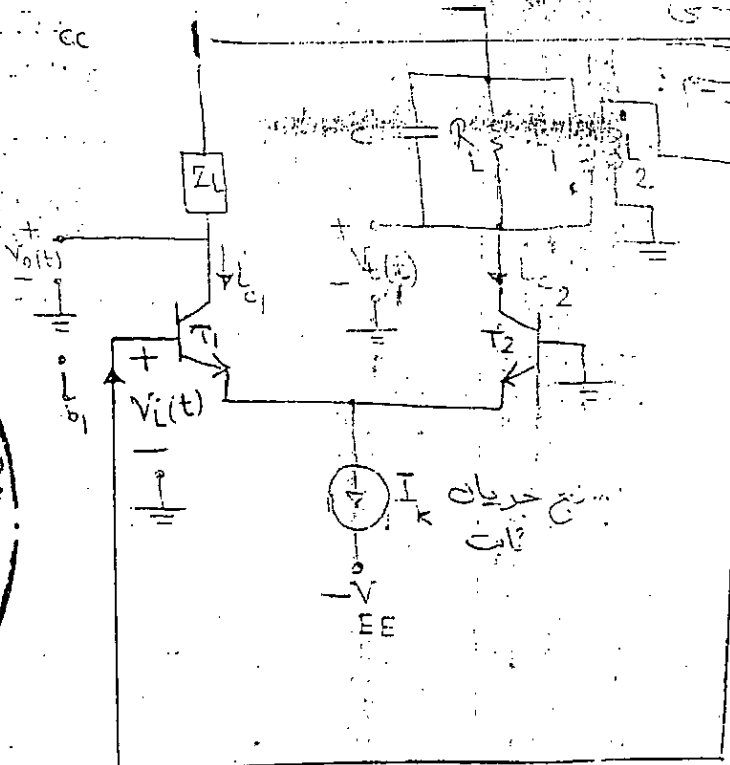 CC
C
R_L
L_2
Z_L
+
V_o(t)
-
i_c1
+
V_t(t)
-
i_c2
T_1
T_2
i_b1
+
V_i(t)
-
I_k
جریان
ثابت
-V_EE